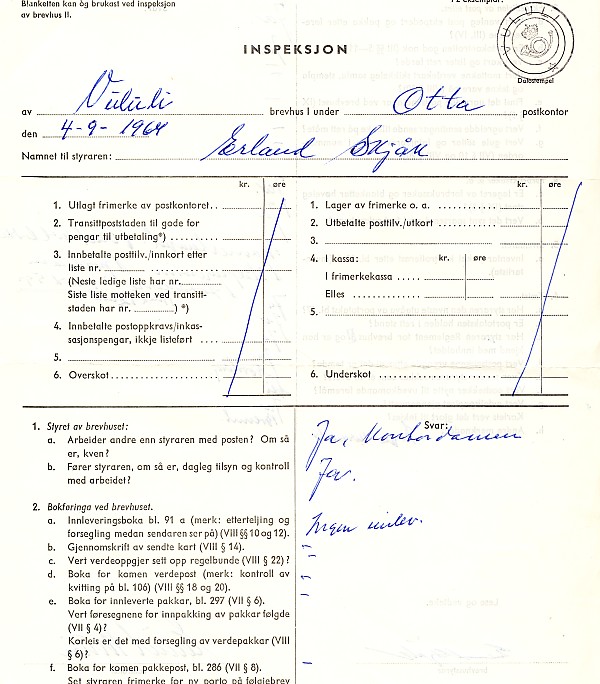 Blanketten kan òg brukast ved inspeksjon
av brevhus II.
INSPEKSJON
VULULI
Datostempel
av Vululi brevhus I under Otta postkontor
den 4-9-1964
Namnet til styraren: Erland Skjåk
kr. øre
1. Utlagt frimerke av postkontoret
2. Transittpoststaden til gode for
pengar til utbetaling*)
3. Innbetalte posttilv./innkort etter
liste nr.
(Neste ledige liste har nr.
Siste liste motteken ved transitt-
staden har nr. ) *)
4. Innbetalte postoppkravs/inkas-
sasjonspengar, ikkje listeført
5.
6. Overskot
kr. øre
1. Lager av frimerke o. a.
2. Utbetalte posttilv./utkort
3.
4. I kassa: kr. øre
I frimerkekassa
Elles
5.
6. Underskot
Svar:
1. Styret av brevhuset:
a. Arbeider andre enn styraren med posten? Om så
er, kven?
Ja, Kontordamen
b. Fører styraren, om så er, dagleg tilsyn og kontroll
med arbeidet?
Ja.
2. Bokføringa ved brevhuset.
a. Innleveringsboka bl. 91 a (merk: etterteljing og
forsegling medan sendaren ser på) (VIII §§ 10 og 12).
Ingen innlev.
b. Gjennomskrift av sendte kart (VIII § 14).
c. Vert verdeoppgjer sett opp regelbunde (VIII § 22)?
d. Boka for komen verdepost (merk: kontroll av
kvitting på bl. 106) (VIII §§ 18 og 20).
e. Boka for innleverte pakkar, bl. 297 (VII § 6).
Vert føresegnene for innpakking av pakkar følgde
(VII § 4)?
Korleis er det med forsegling av verdepakkar (VIII
§ 6)?
f. Boka for komen pakkepost, bl. 286 (VII § 8).
Set styraren frimerke for ny porto på følgjebrev